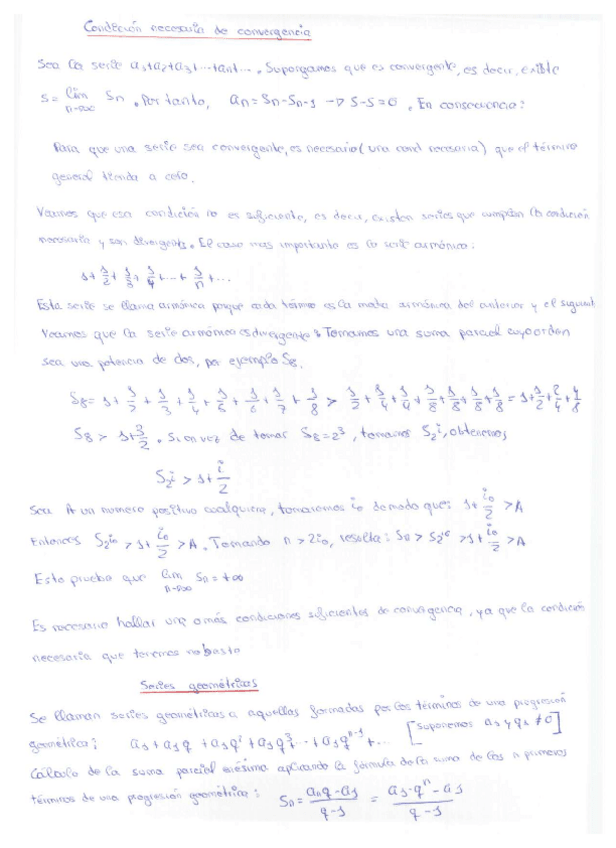 Condición necesaria de convergencia
Sea la serie a₁+a₂+a₃+...+an+... . Supongamos que es convergente, es decir, existe
S = lim n→∞ Sn . Por tanto, an = Sn - Sn-1 → S-S=0 . En consecuencia:
Para que una serie sea convergente, es necesario (una cond necesaria) que el término
general tienda a cero.
Veamos que esa condición no es suficiente, es decir, existen series que cumplen la condición
necesaria y son divergentes. El caso mas importante es la serie armónica:
1 + 1/2 + 1/3 + 1/4 + ... + 1/n + ...
Esta serie se llama armónica porque cada término es la media armónica del anterior y el siguient
Veamos que la serie armónica es divergente: Tomamos una suma parcial cuyo orden
sea una potencia de dos, por ejemplo S₈.
S₈ = 1 + 1/2 + 1/3 + 1/4 + 1/5 + 1/6 + 1/7 + 1/8 > 1/2 + 1/4 + 1/4 + 1/8 + 1/8 + 1/8 + 1/8 = 1 + 1/2 + 2/4 + 4/8
S₈ > 1 + 3/2 . Si en vez de tomar S₈ = 2³, tomamos S₂ⁱ, obtenemos
S₂ⁱ > 1 + i/2
Sea A un numero positivo cualquiera, tomaremos i₀ de modo que: 1 + i₀/2 > A
Entonces S₂ⁱ⁰ > 1 + i₀/2 > A . Tomando n > 2i₀, resulta: Sn > S₂ⁱ⁰ > 1 + i₀/2 > A
Esto prueba que lim n→∞ Sn = +∞
Es necesario hallar una o más condiciones suficientes de convergencia, ya que la condición
necesaria que tenemos no basta
Series geométricas
Se llaman series geométricas a aquellas formadas por los términos de una progresión
geométrica: a₁ + a₁q + a₁q² + a₁q³ ... + a₁qⁿ⁻¹ + ... [suponemos a₁ y q₁ ≠ 0]
Cálculo de la suma parcial enésima aplicando la fórmula de la suma de los n primeros
términos de una progresión geométrica: Sn = (anq - a₁)/(q-1) = (a₁·qⁿ - a₁)/(q-1)